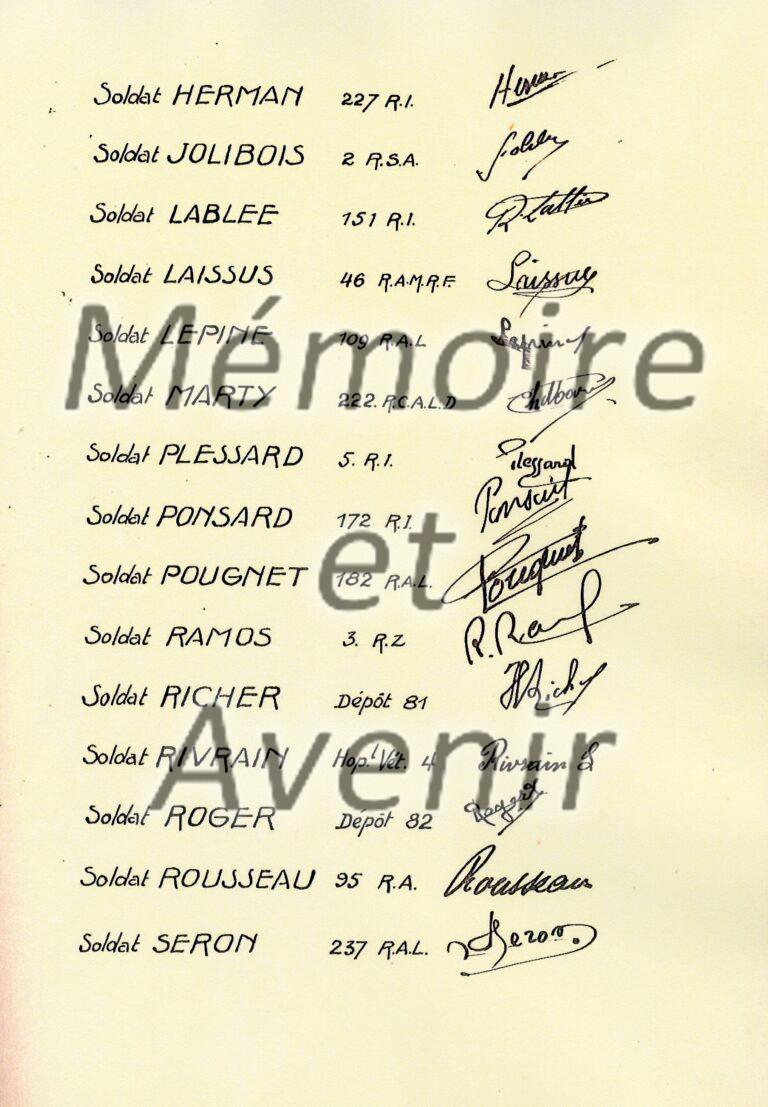 Soldat HERMAN 227 R.I. Herman
Soldat JOLIBOIS 2 R.S.A.
Soldat LABLEE 151 R.I.
Soldat LAISSUS 46 R.A.M.R.F. Laissus
Soldat LEPINE 109 R.A.L
Mémoire
Soldat MARTY 222. R.C.A.L.D
Soldat PLESSARD 5. R.I. Plessard
Soldat PONSARD 172 R.I.
et
Soldat POUGNET 182 R.A.L. Pougnet
Soldat RAMOS 3. R.Z
Soldat RICHER Dépôt 81
Avenir
Soldat RIVRAIN Hop.l Vét. 4 Rivrain
Soldat ROGER Dépôt 82
Soldat ROUSSEAU 95 R.A. Rousseau
Soldat SERON 237 R.A.L. Seron.